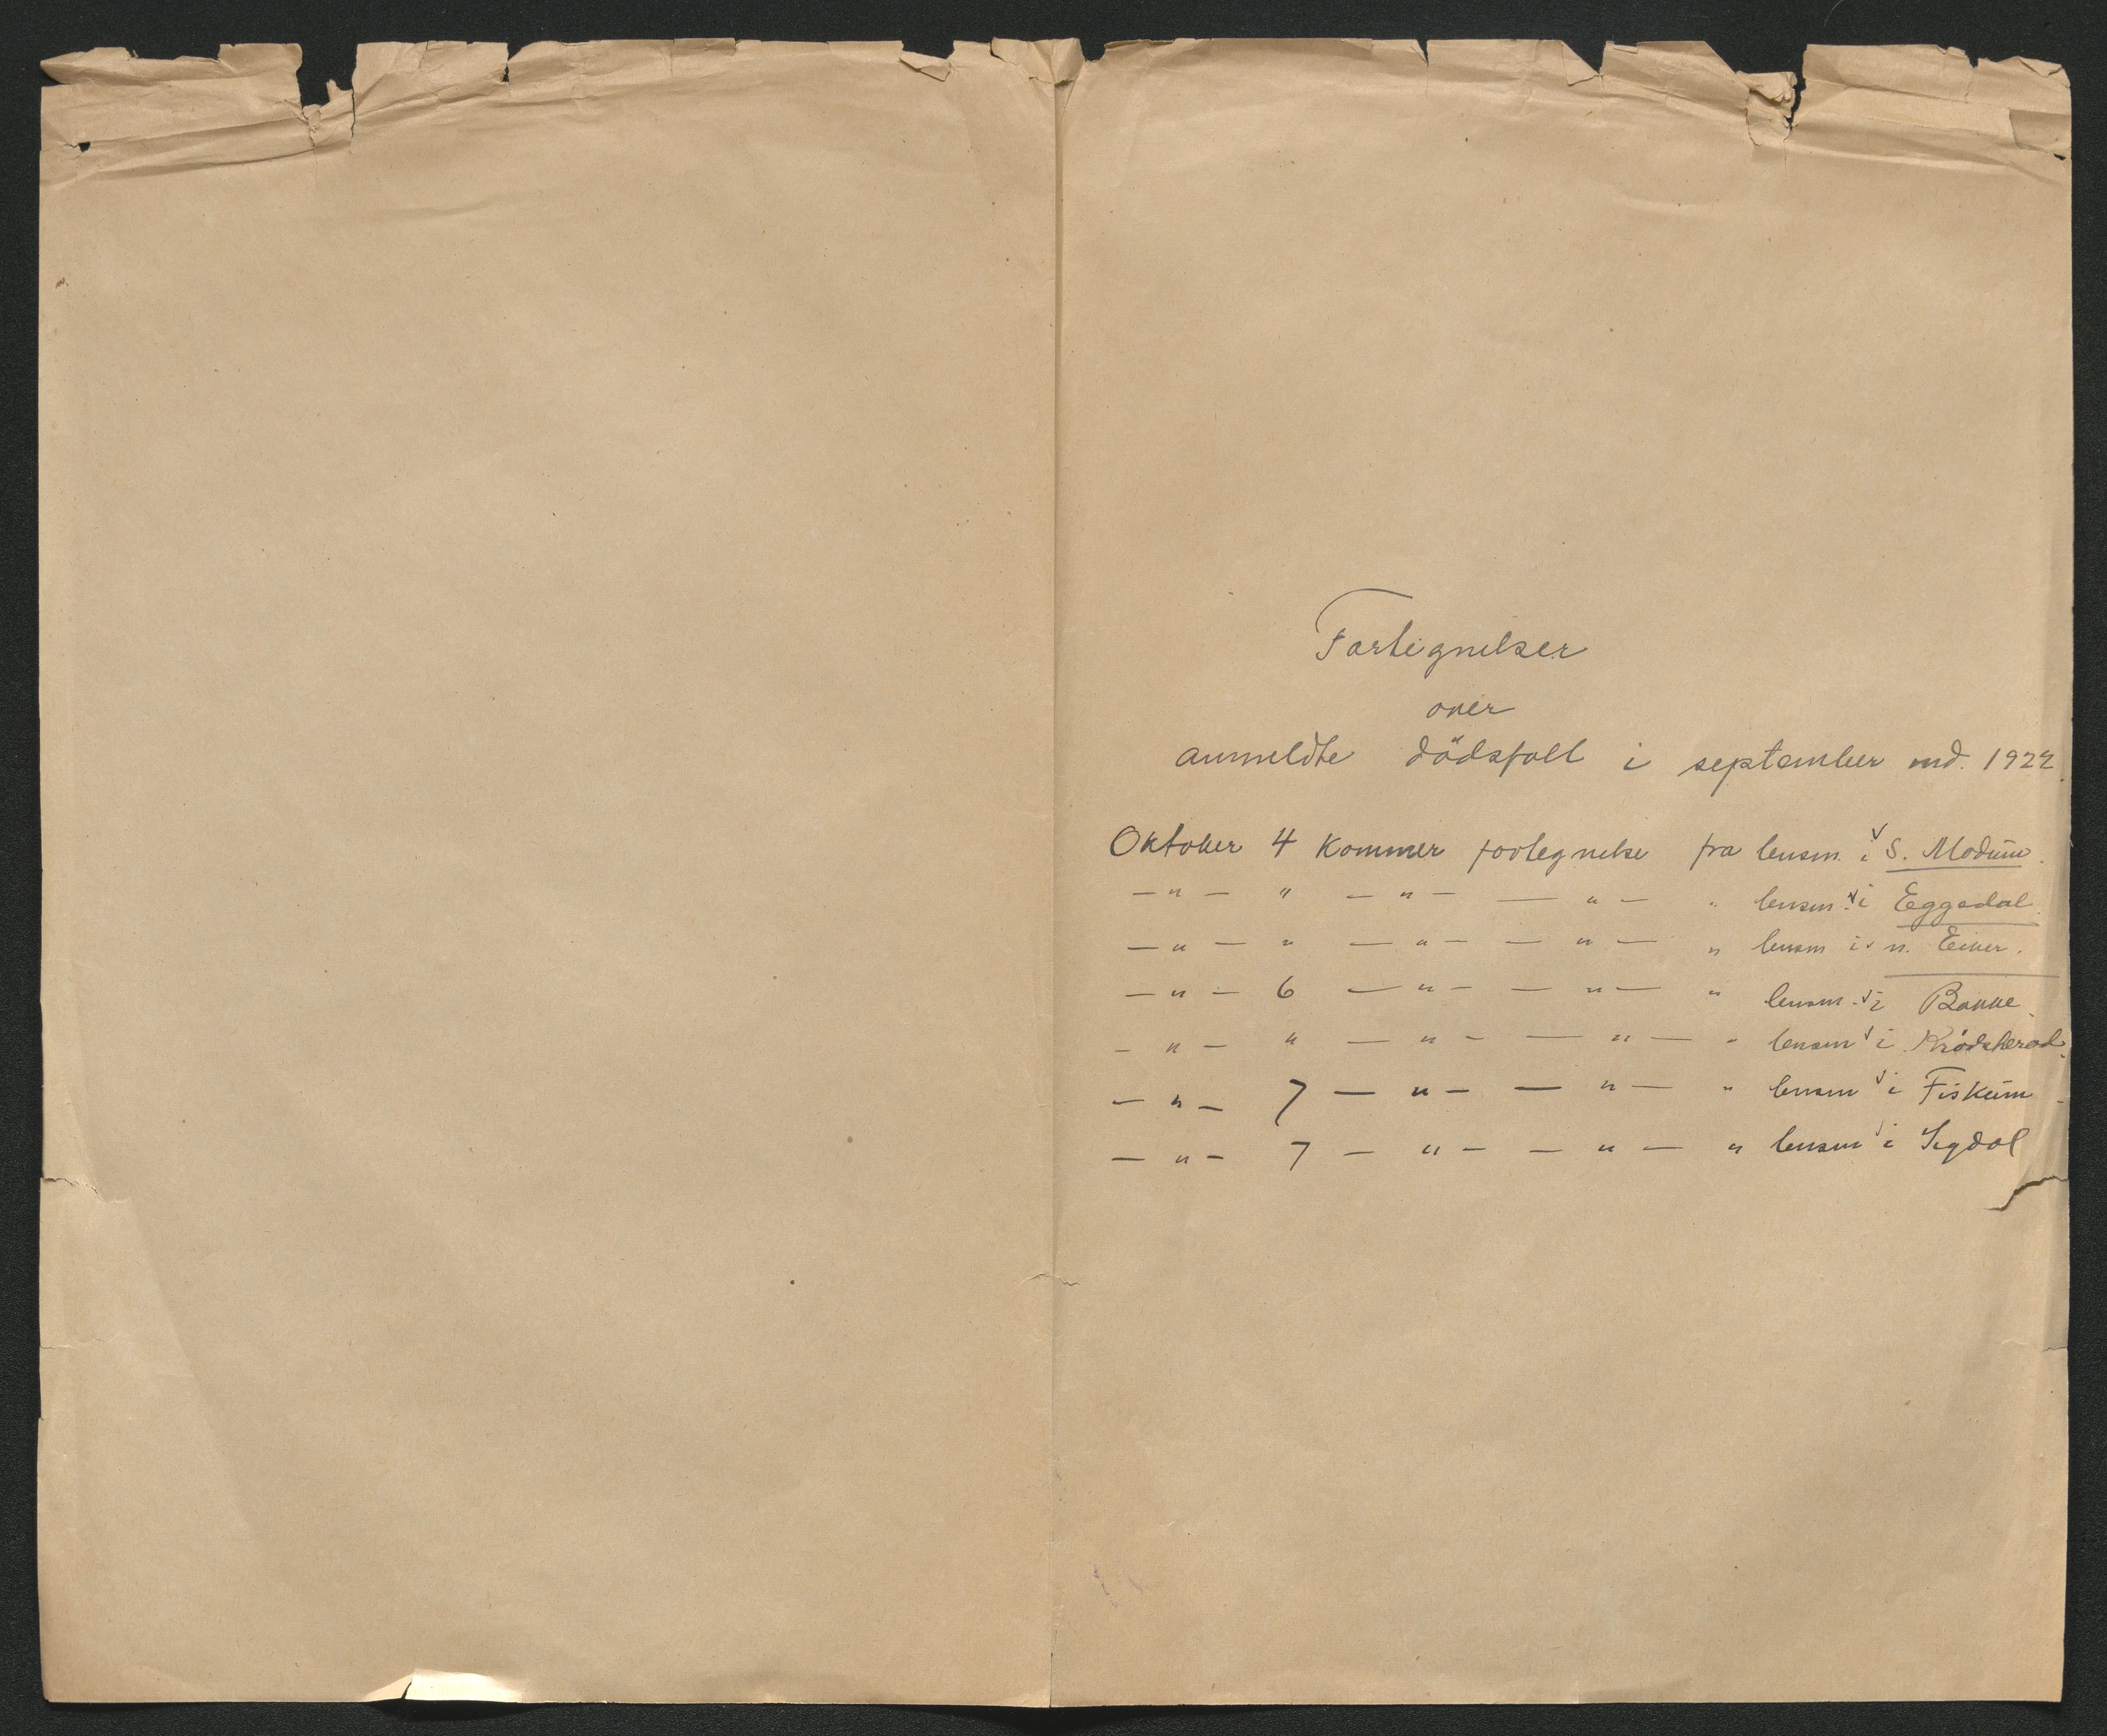 Fortegnelser
over
anmeldte dödsfall i september md. 1922.
Oktober 4 kommer fortegnelse fra lensm. i √ S. Modum.
— " — " — " — — " — " lensm. √ i Eggedal.
— " — " — " — — " — " lensm i √ n. Eiker.
— " — 6 — " — — " — " lensm. √ i Bakke.
— " — " — " — — " — " lensm √ i Krödsherad.
— " — 7 — " — — " — " lensm √ i Fiskum.
— " — 7 — " — — " — " lensm √ i Sigdal